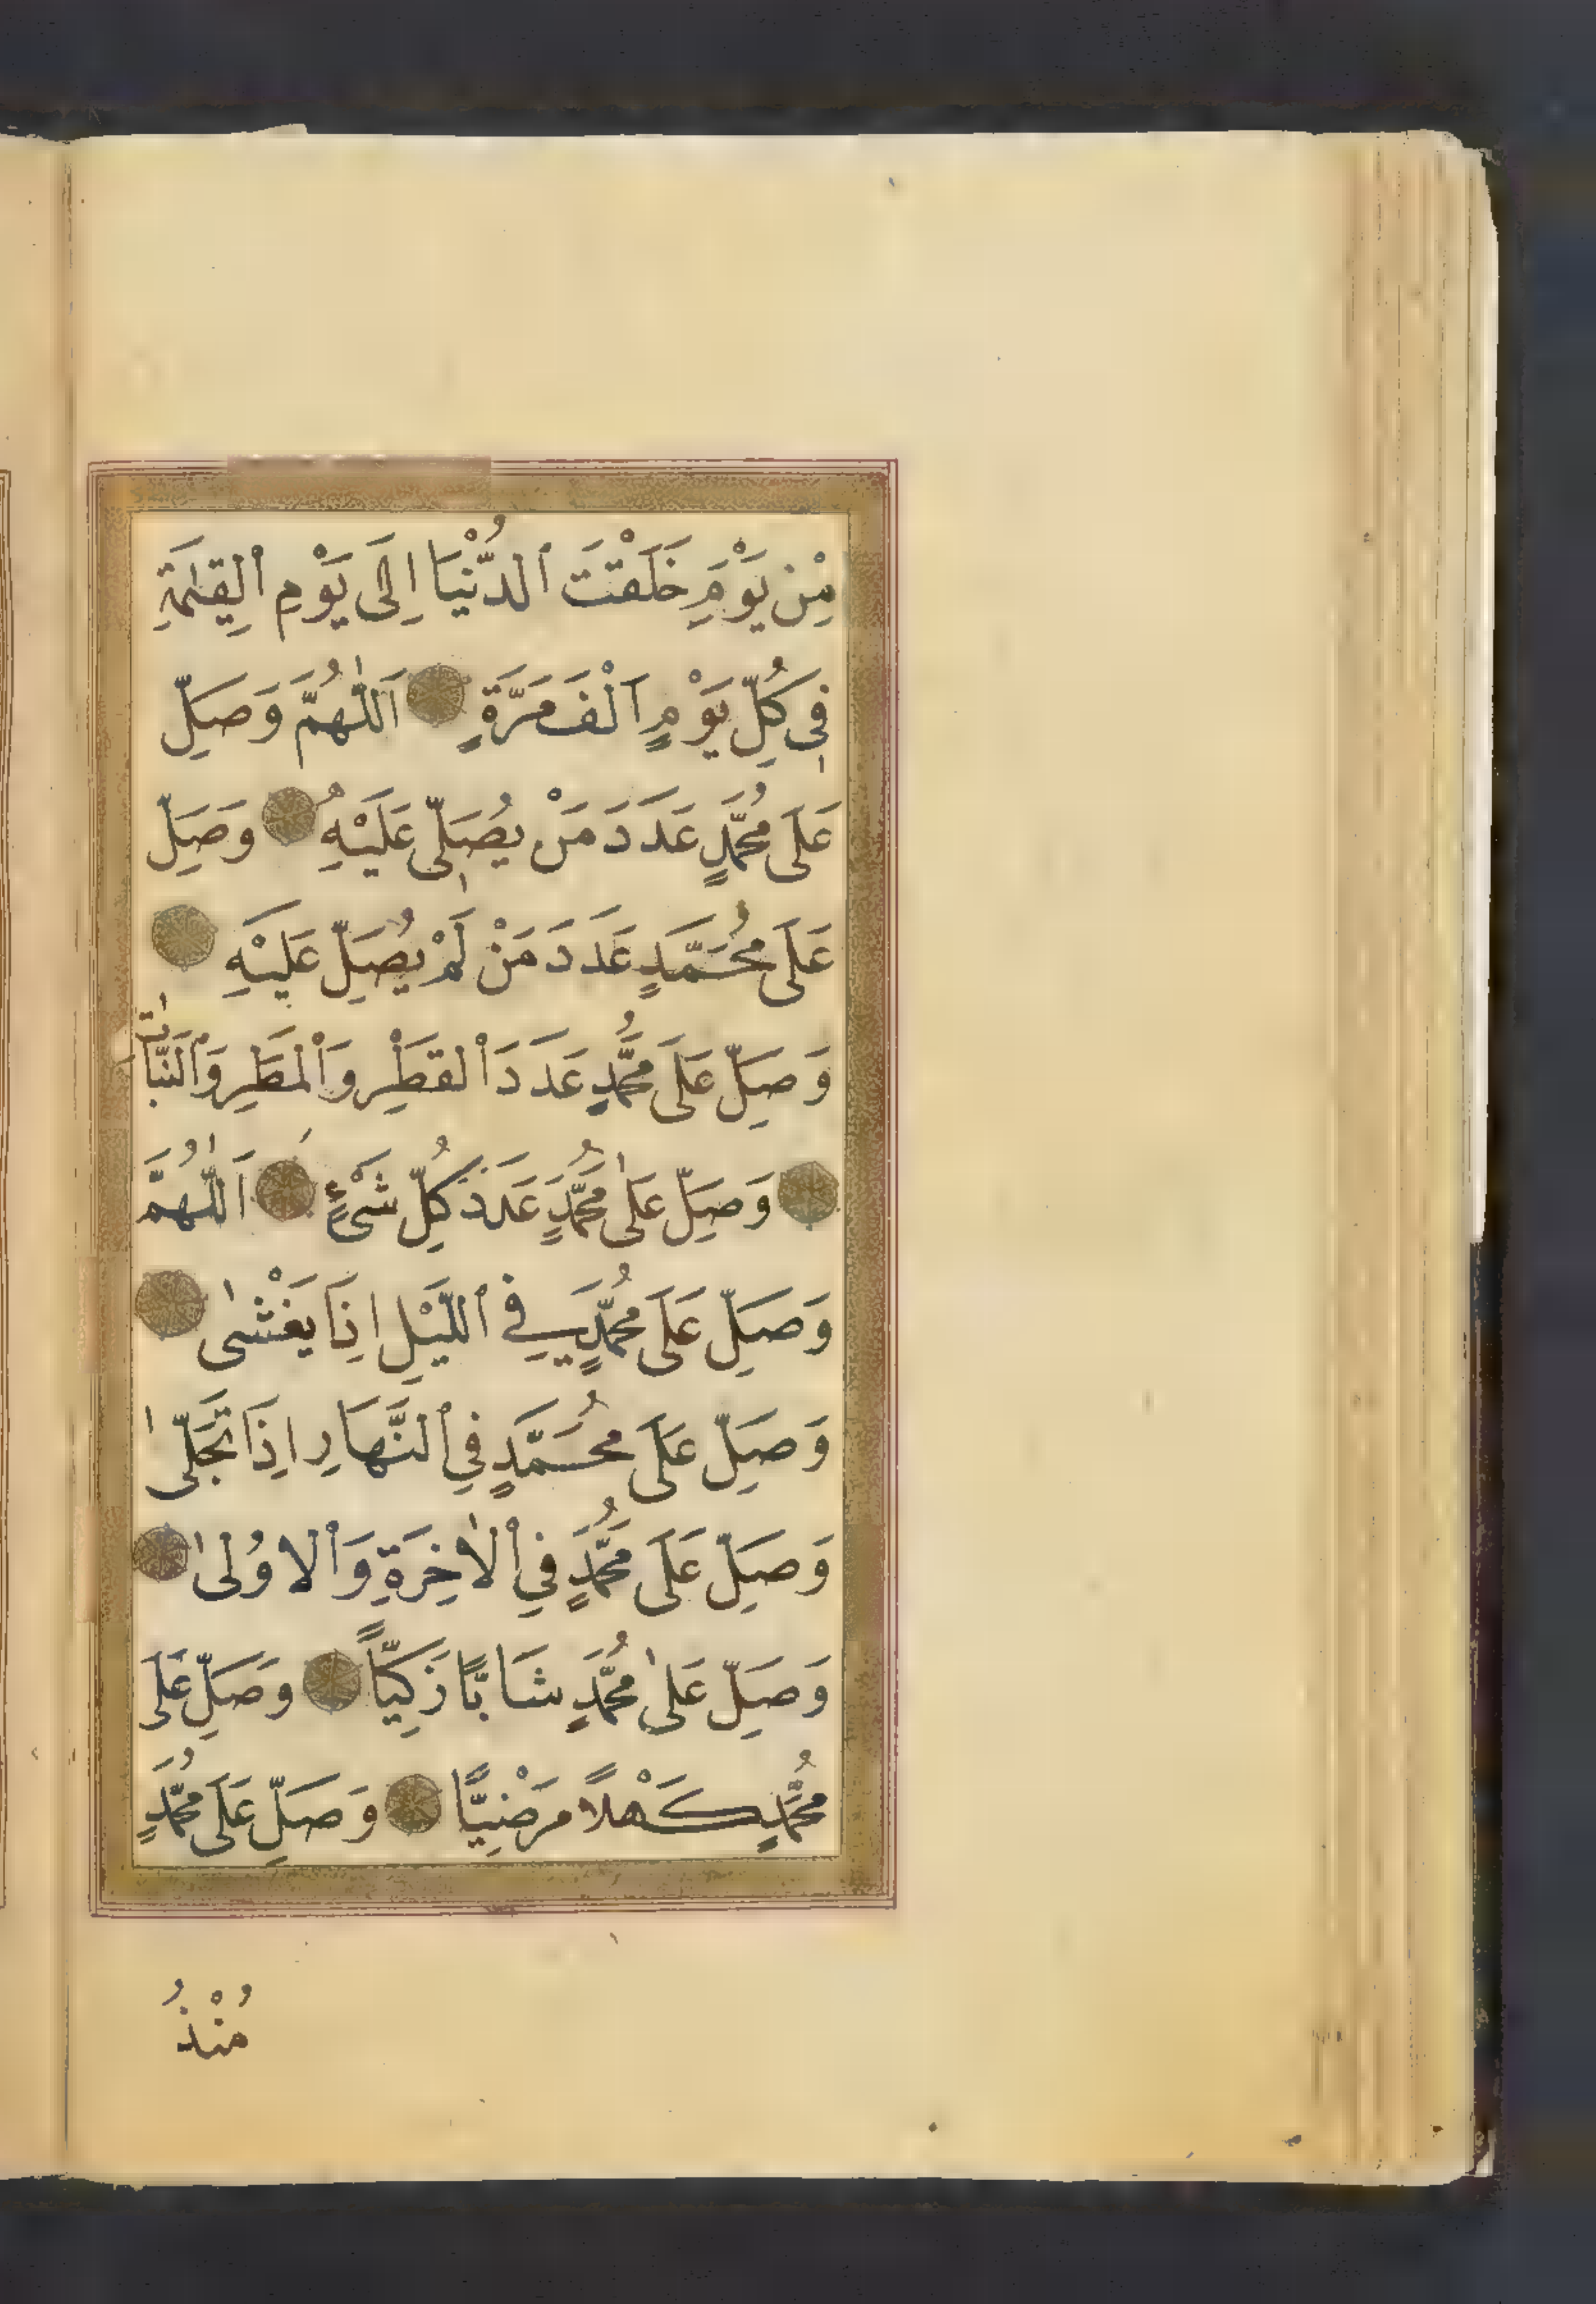 مِنْ يَوْمَ خَلَقْتَ ٱلدُّنْيَا اِلَى يَوْمِ ٱلْقِيٰمَةِ
فِى كُلِّ يَوْمٍ اَلْفَ مَرَّةٍ اَللّٰهُمَّ وَصَلِّ
عَلَى مُحَمَّدٍ عَدَدَ مَنْ يُصَلِّى عَلَيْهِ وَصَلِّ
عَلَى مُحَمَّدٍ عَدَدَ مَنْ لَمْ يُصَلِّ عَلَيْهِ
وَصَلِّ عَلَى مُحَمَّدٍ عَدَدَ ٱلْقَطْرِ وَٱلْمَطَرِ وَٱلنَّبَاتِ
وَصَلِّ عَلٰى مُحَمَّدٍ عَدَدَ كُلِّ شَىْءٍ اَللّٰهُمَّ
وَصَلِّ عَلَى مُحَمَّدٍ فِي ٱللَّيْلِ اِذَا يَغْشٰى
وَصَلِّ عَلَى مُحَمَّدٍ فِي ٱلنَّهَارِ اِذَا تَجَلّٰى
وَصَلِّ عَلَى مُحَمَّدٍ فِي ٱلْاٰخِرَةِ وَٱلْاُولٰى
وَصَلِّ عَلٰى مُحَمَّدٍ شَابًّا زَكِيًّا وَصَلِّ عَلَى
مُحَمَّدٍ كَهْلًا مَرْضِيًّا وَصَلِّ عَلَى مُحَمَّدٍ
مُنْذُ